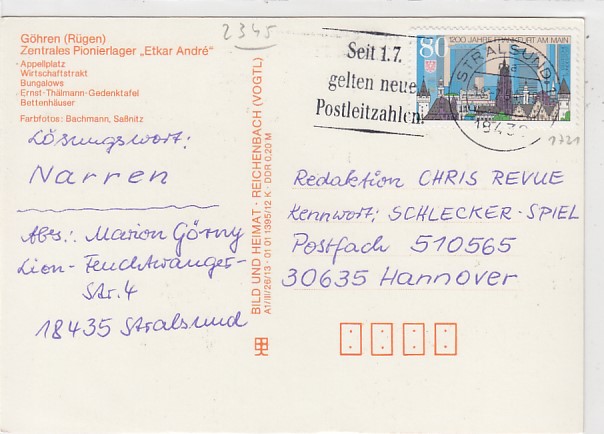 2345
Göhren (Rügen)
Zentrales Pionierlager „Etkar André“
Appellplatz
Wirtschaftstrakt
Bungalows
Ernst-Thälmann-Gedenktafel
Bettenhäuser
Farbfotos: Bachmann, Saßnitz
Lösungswort:
Narren
Abs.: Marion Görny
Lion-Feuchtwanger-
Str. 4
18435 Stralsund
BILD UND HEIMAT · REICHENBACH (VOGTL)
A1/III/26/13 · 01 01 1395/12 K · DDR 0,20 M
Seit 1.7.
gelten neue
Postleitzahlen!
80 1200 JAHRE FRANKFURT AM MAIN
STRALSUND
1721
Redaktion CHRIS REVUE
Kennwort: SCHLECKER-SPIEL
Postfach 510565
30635 Hannover